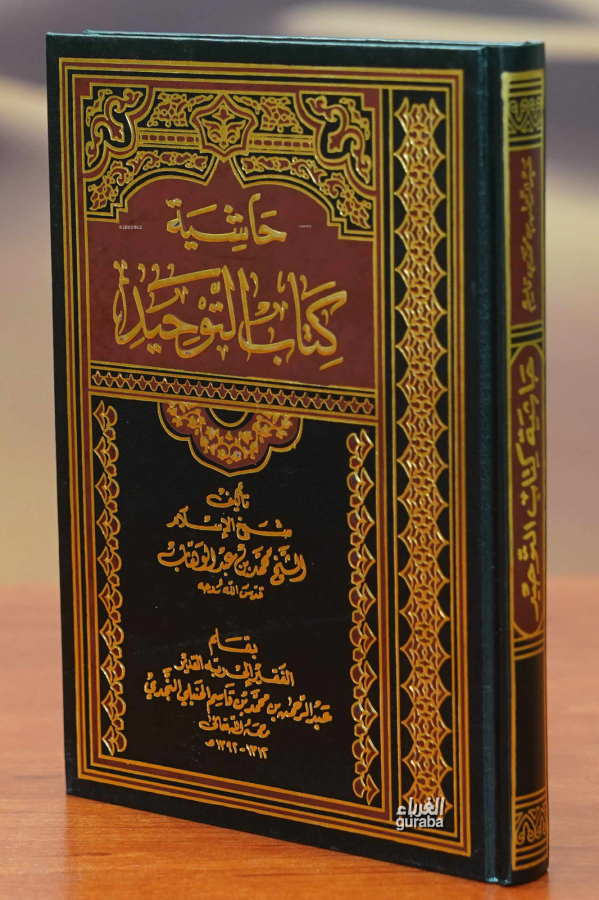 حَاشِيَة
كِتَابُ التَّوْحِيد
تأليف
شيخ الإسلام
الشيخ محمد بن عبد الوهاب
قدس الله روحه
بقلم
الفقير إلى ربه القدير
عبد الرحمن بن محمد بن قاسم الحنبلي النجدي
رحمه الله تعالى
١٣١٢-١٣٩٢هـ
حاشية كتاب التوحيد
الغرباء
guraba